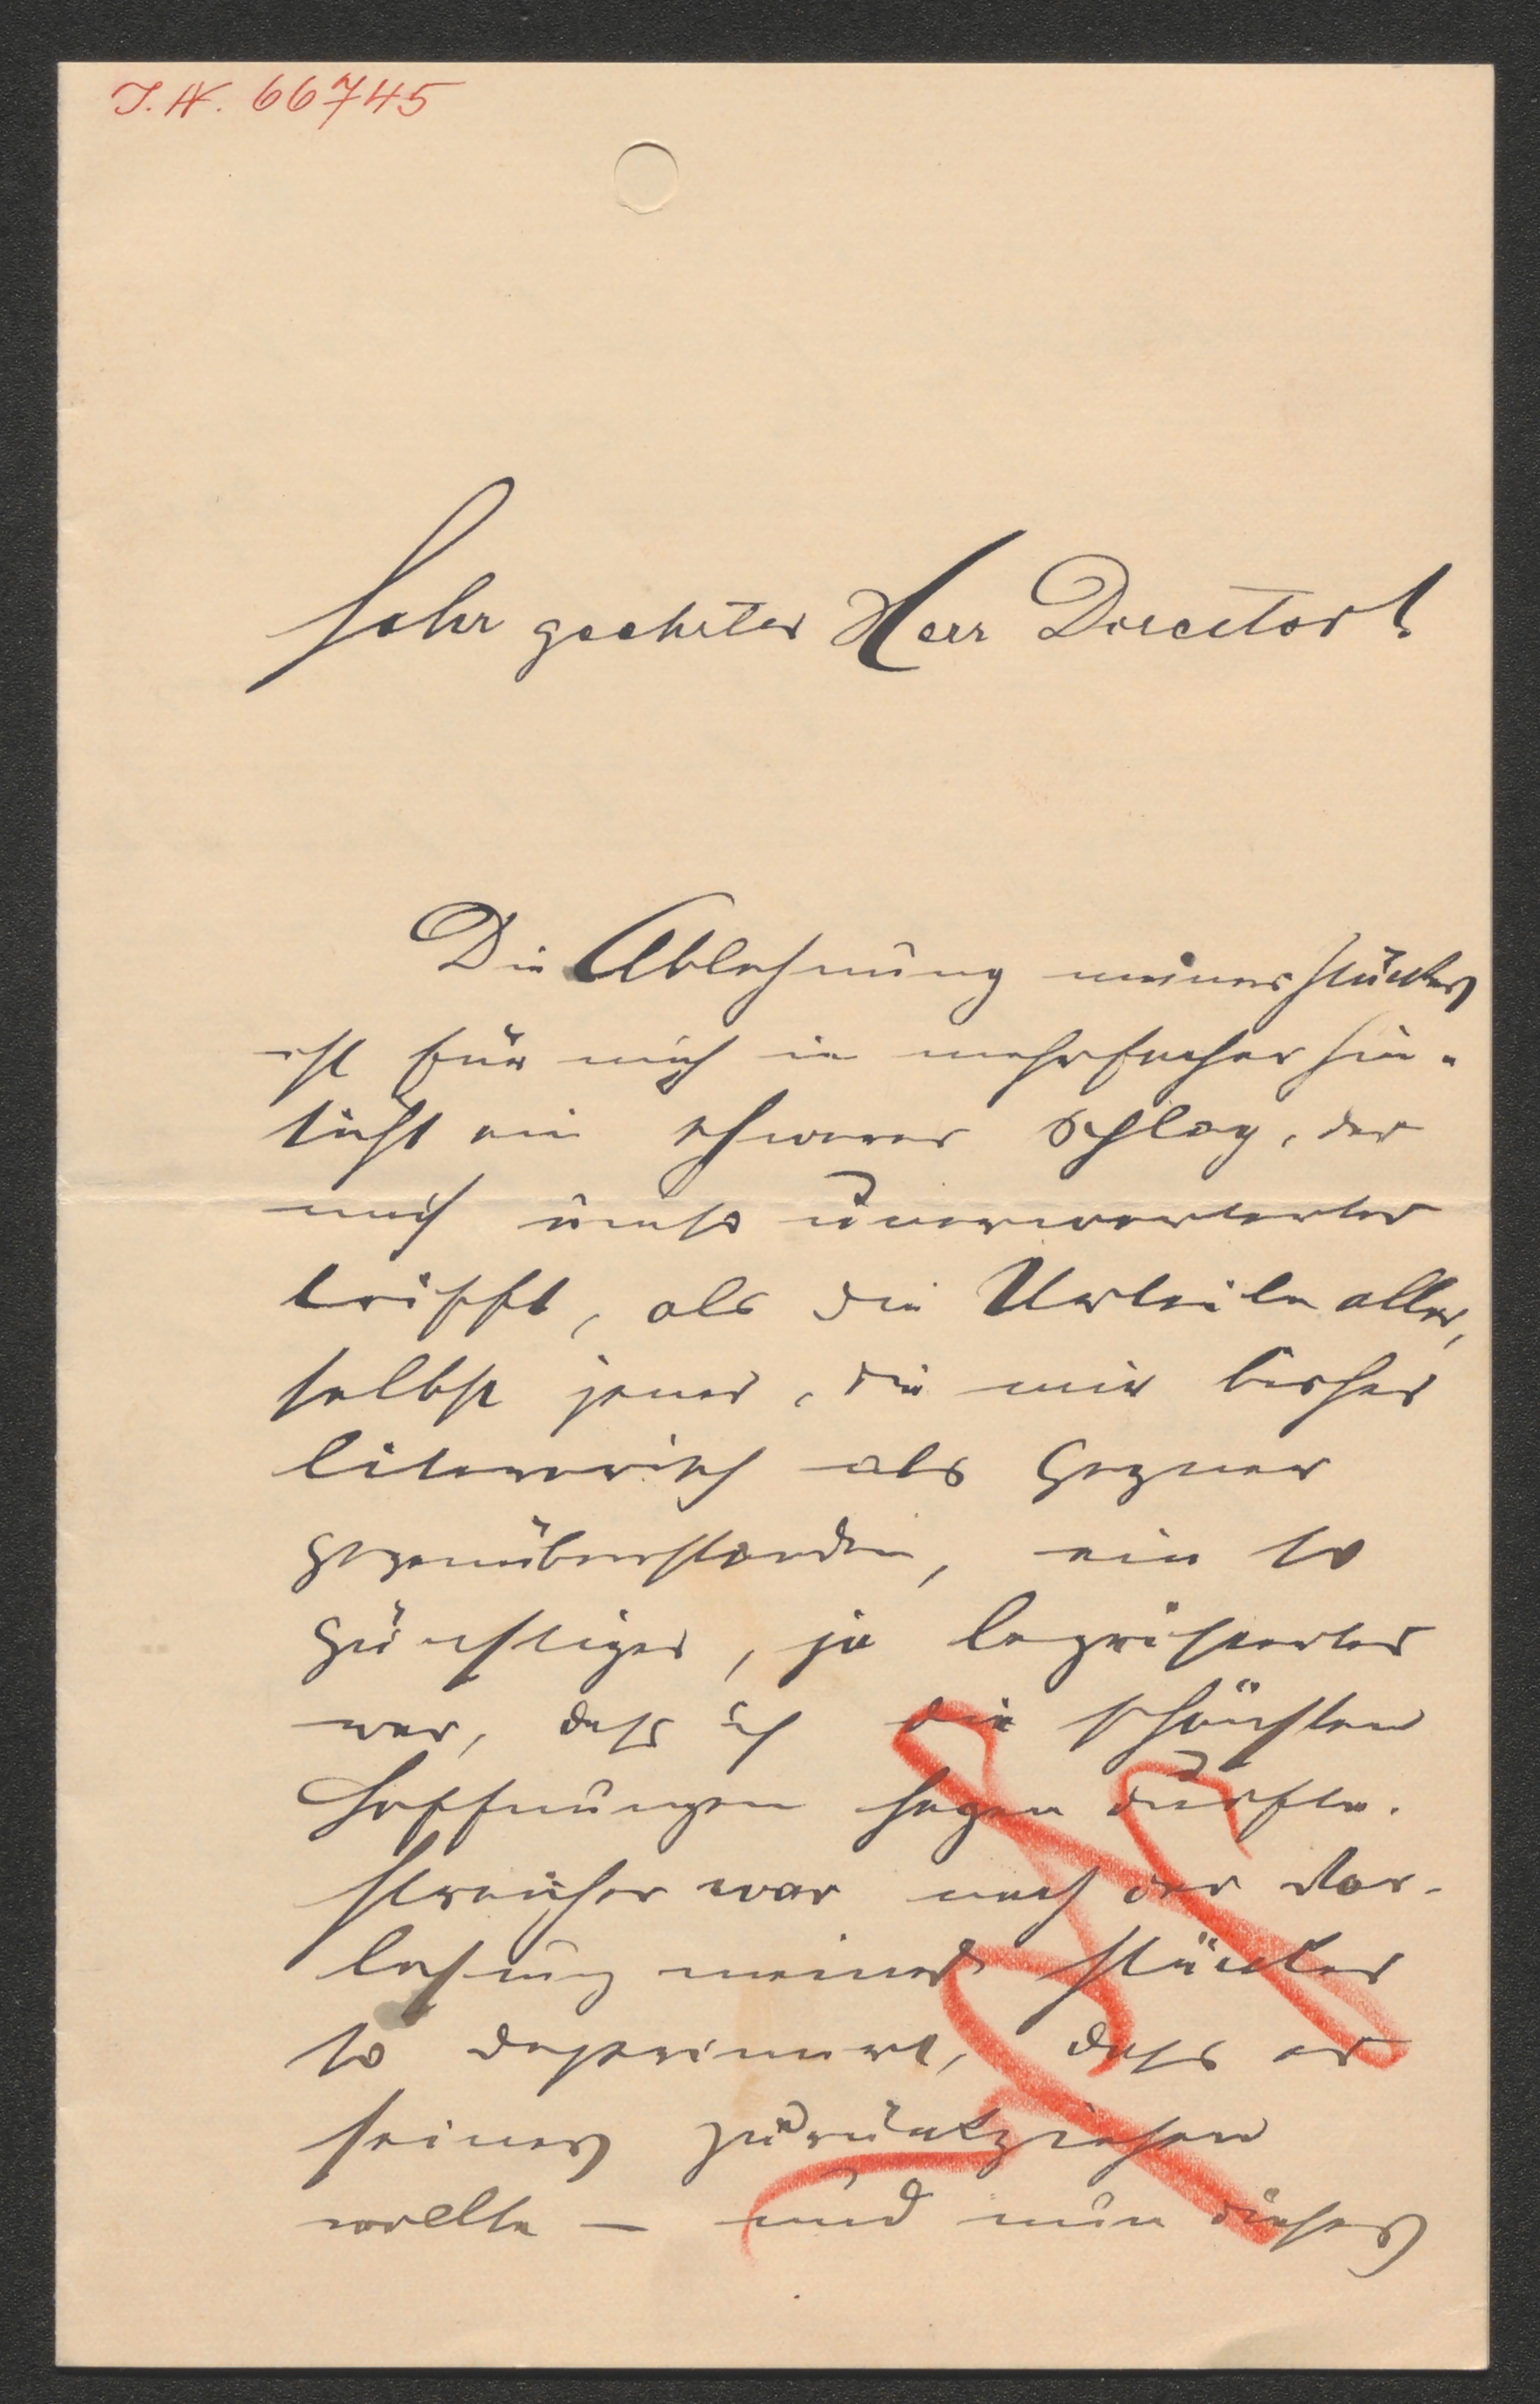 J.N. 66745
Sehr geehrter Herr Director!
Die Ablehnung meines Stückes
ist für mich in mehrfacher Hin-
sicht ein schwerer Schlag, der
mich umso unerwarteter
trifft, als die Urteile aller,
selbst jener, die mir bisher
literarisch als Gegner
gegenüberstanden, ein so
günstiges, ja begeistertes
war, dass ich die schönsten
Hoffnungen hegen durfte.
war nach der Vor-
lesung meines Stückes
so deprimirt, dass er
seines zurückziehen
wollte – und nun dieses